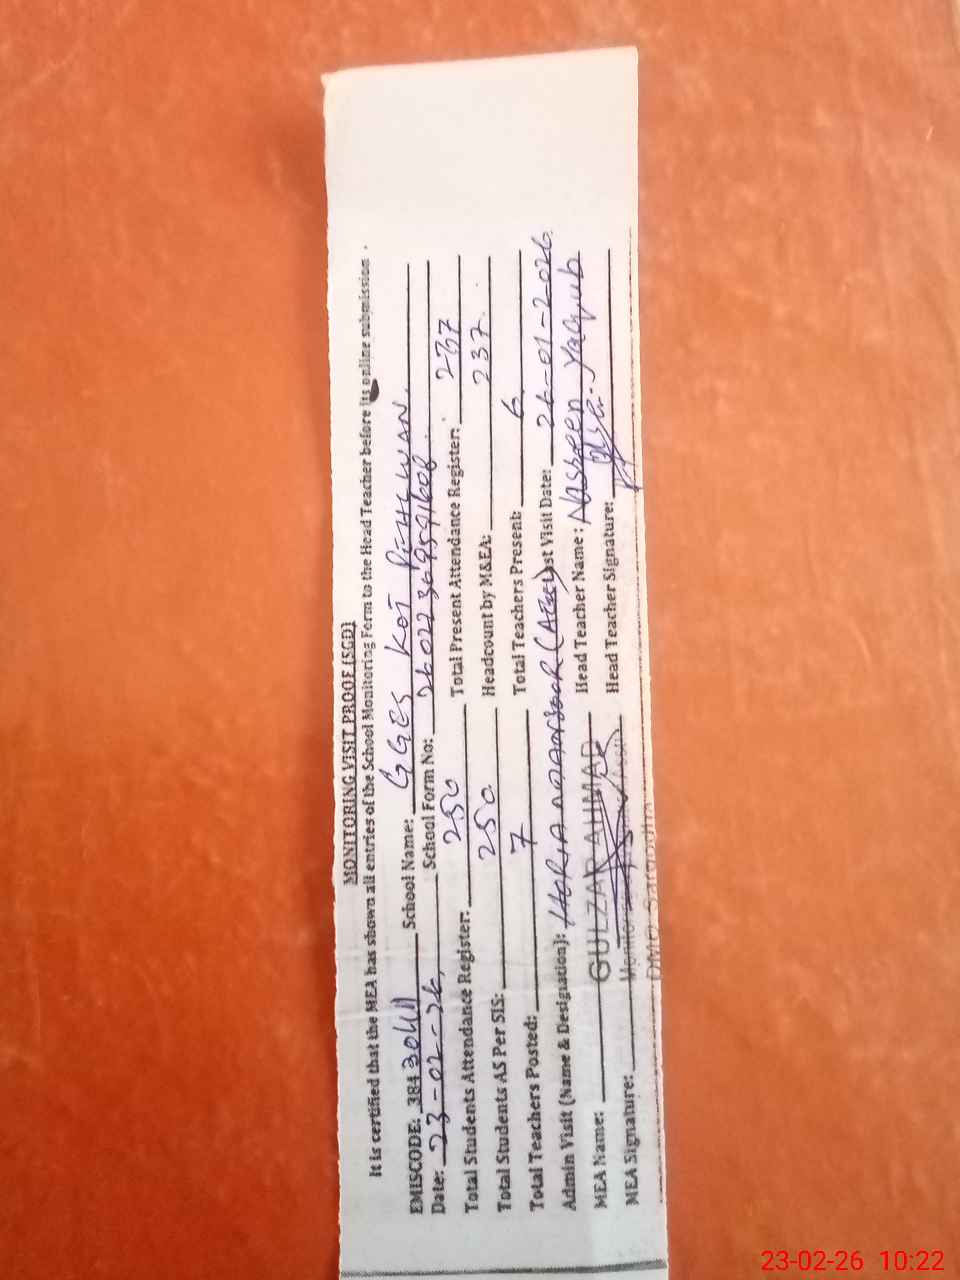 MONITORING VISIT PROOF (SGD)
It is certified that the MEA has shown all entries of the School Monitoring Form to the Head Teacher before its online submission.
EMISCODE: School Name: GGES KOT PEHLWAN.
Date: 23-02-26 School Form No:
Total Students Attendance Register: 250 Total Present Attendance Register: 237
Total Students AS Per SIS: 250 Headcount by M&EA: 237.
Total Teachers Posted: 7 Total Teachers Present: 6
Admin Visit (Name & Designation): Last Visit Date: 26-01-2026.
MEA Name: GULZAR AHMAD Head Teacher Name: Nasreen Yaqub
MEA Signature: Head Teacher Signature:
DMO Sargodha
23-02-26 10:22